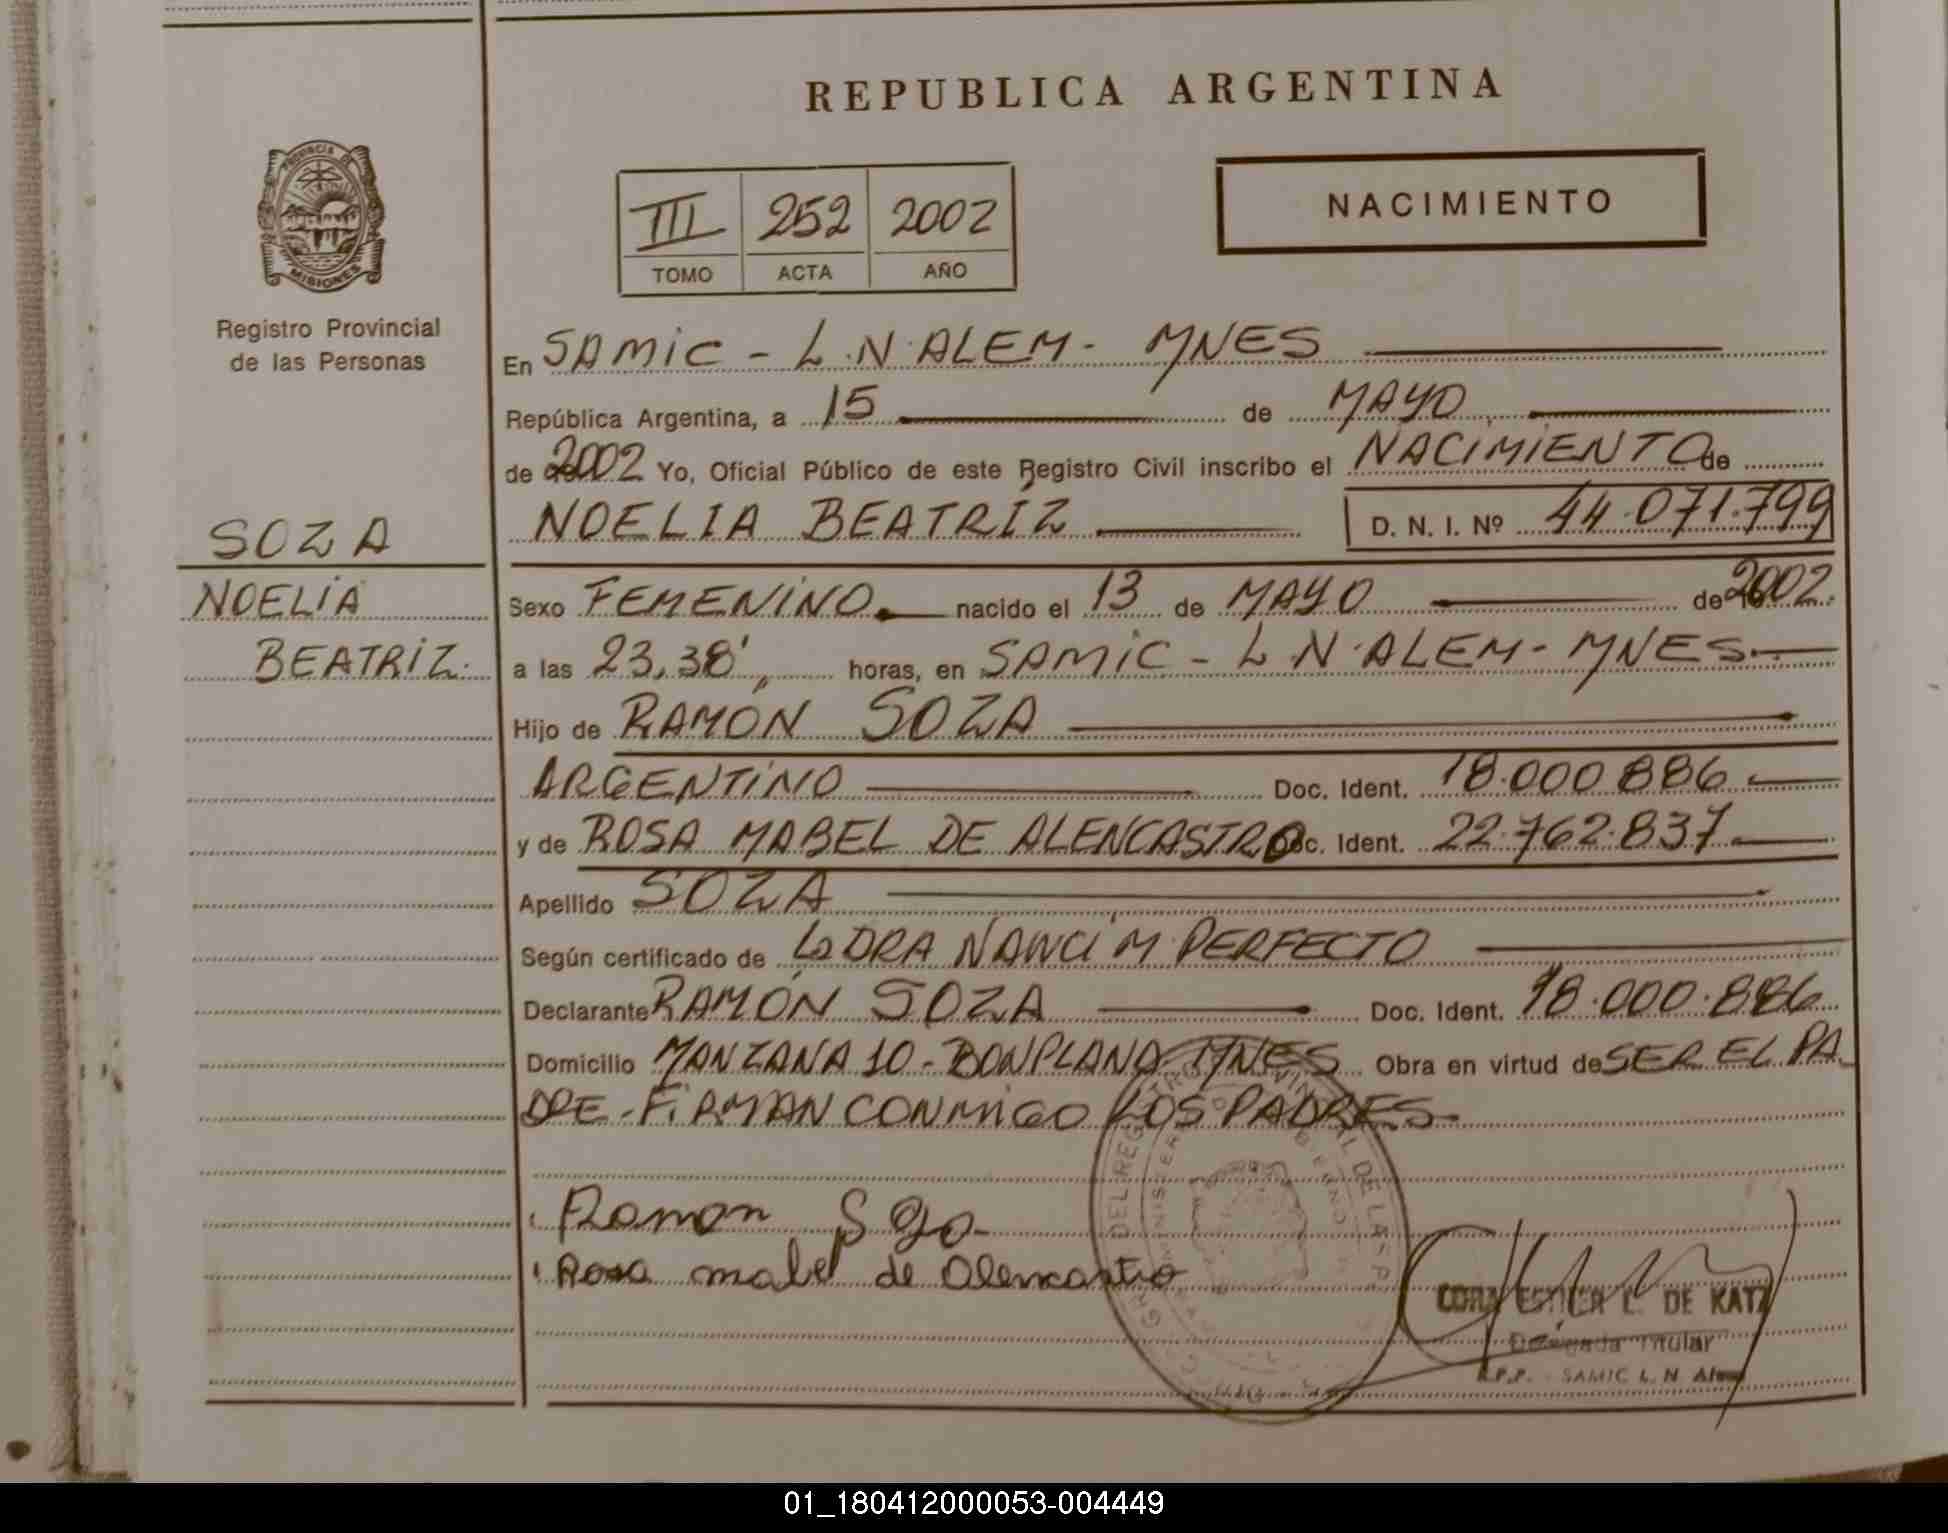 REPUBLICA ARGENTINA
PROVINCIA DE
MISIONES
Registro Provincial
de las Personas
III 252 2002
TOMO ACTA AÑO
NACIMIENTO
En SAMIC - L.N. ALEM - MNES
República Argentina, a 15 de MAYO
de 2002 Yo, Oficial Público de este Registro Civil inscribo el NACIMIENTO de
NOELIA BEATRÍZ D. N. I. Nº 44.071.799
SOZA
NOELIA
BEATRIZ.
Sexo FEMENINO nacido el 13 de MAYO de 2002.
a las 23,38' horas, en SAMIC - L.N. ALEM - MNES
Hijo de RAMÓN SOZA
ARGENTINO Doc. Ident. 18.000.886
y de ROSA MABEL DE ALENCASTRO Doc. Ident. 22.762.837
Apellido SOZA
Según certificado de DRA NANCI M. PERFECTO
Declarante RAMÓN SOZA Doc. Ident. 18.000.886
Domicilio MANZANA 10 - BONPLAND - MNES Obra en virtud de SER EL PA
DRE - FIRMAN CONMIGO LOS PADRES -
Ramon
Rosa mabel de Alencastro
CORA ESTHER L. DE KATZ
Delegada Titular
R.P.P. SAMIC L. N. Alem
01_180412000053-004449